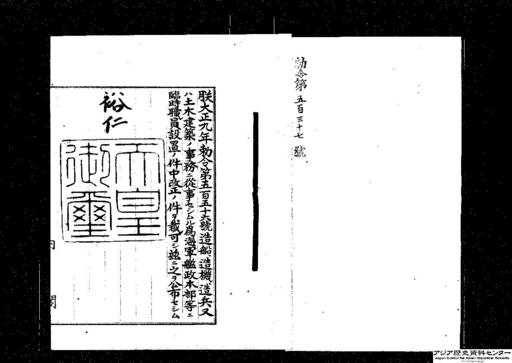 勅令第五百三十七號
朕大正九年勅令第五百五十六號造船、造機、造兵又
ハ土木建築ノ事務ニ從事セシムル爲海軍艦政本部等ニ
臨時職員設置ノ件中改正ノ件ヲ裁可シ玆ニ之ヲ公布セシム
裕仁
天皇
御璽
内閣
アジア歴史資料センター
Japan Center for Asian Historical Records